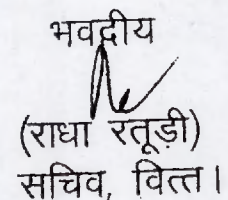 भवदीय
(राधा रतूड़ी)
सचिव, वित्त।